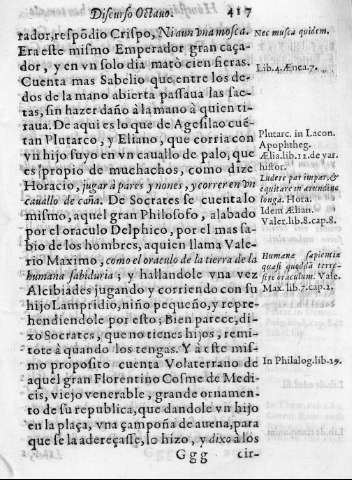 Discurso Octauo. 417
rador, respõdio Crispo, Ni aun vna mosca.
Era este mismo Emperador gran caça-
dor, y en vn solo dia matò cien fieras.
Cuenta mas Sabelio que entre los de-
dos de la mano abierta passaua las sae-
tas, sin hazer daño à la mano à quien ti-
raua. De aqui es lo que de Agesilao cuẽ-
tan Plutarco, y Eliano, que corria con
vn hijo suyo en vn cauallo de palo, que
es propio de muchachos, como dize
Horacio, jugar à pares y nones, y correr en vn
cauallo de caña. De Socrates se cuenta lo
mismo, aquel gran Philosofo, alabado
por el oraculo Delphico, por el mas sa-
bio de los hombres, a quien llama Vale-
rio Maximo, como el oraculo de la tierra de la
humana sabiduria; y hallandole vna vez
Alcibiades jugando y corriendo con su
hijo Lampridio, niño pequeño, y repre-
hendiendole por esto; Bien parece, di-
xo Socrates, que no tienes hijos, remi-
tote à quando los tengas. Y à este mis-
mo proposito cuenta Volaterrano de
aquel gran Florentino Cosme de Medi-
cis, viejo venerable, grande ornamen-
to de su republica, que dandole vn hijo
en la plaça, vna çampoña de auena, para
que se la adereçasse, lo hizo, y dixo à los
Ggg cir-
Nec musca quidem.
Lib. 4. Ænea. 7.
Plutarc. in Lacon.
Apophtheg.
Ælia. lib. 12. de var.
histor.
Ludere par impar, &
equitare in arundine
longa. Hora.
Idem Ælian.
Valer. lib. 8. cap. 8.
Humanæ sapientiæ
quasi quoddã terre-
stre oraculum. Vale.
Max. lib. 7. cap. 2.
In Philalog. lib. 29.